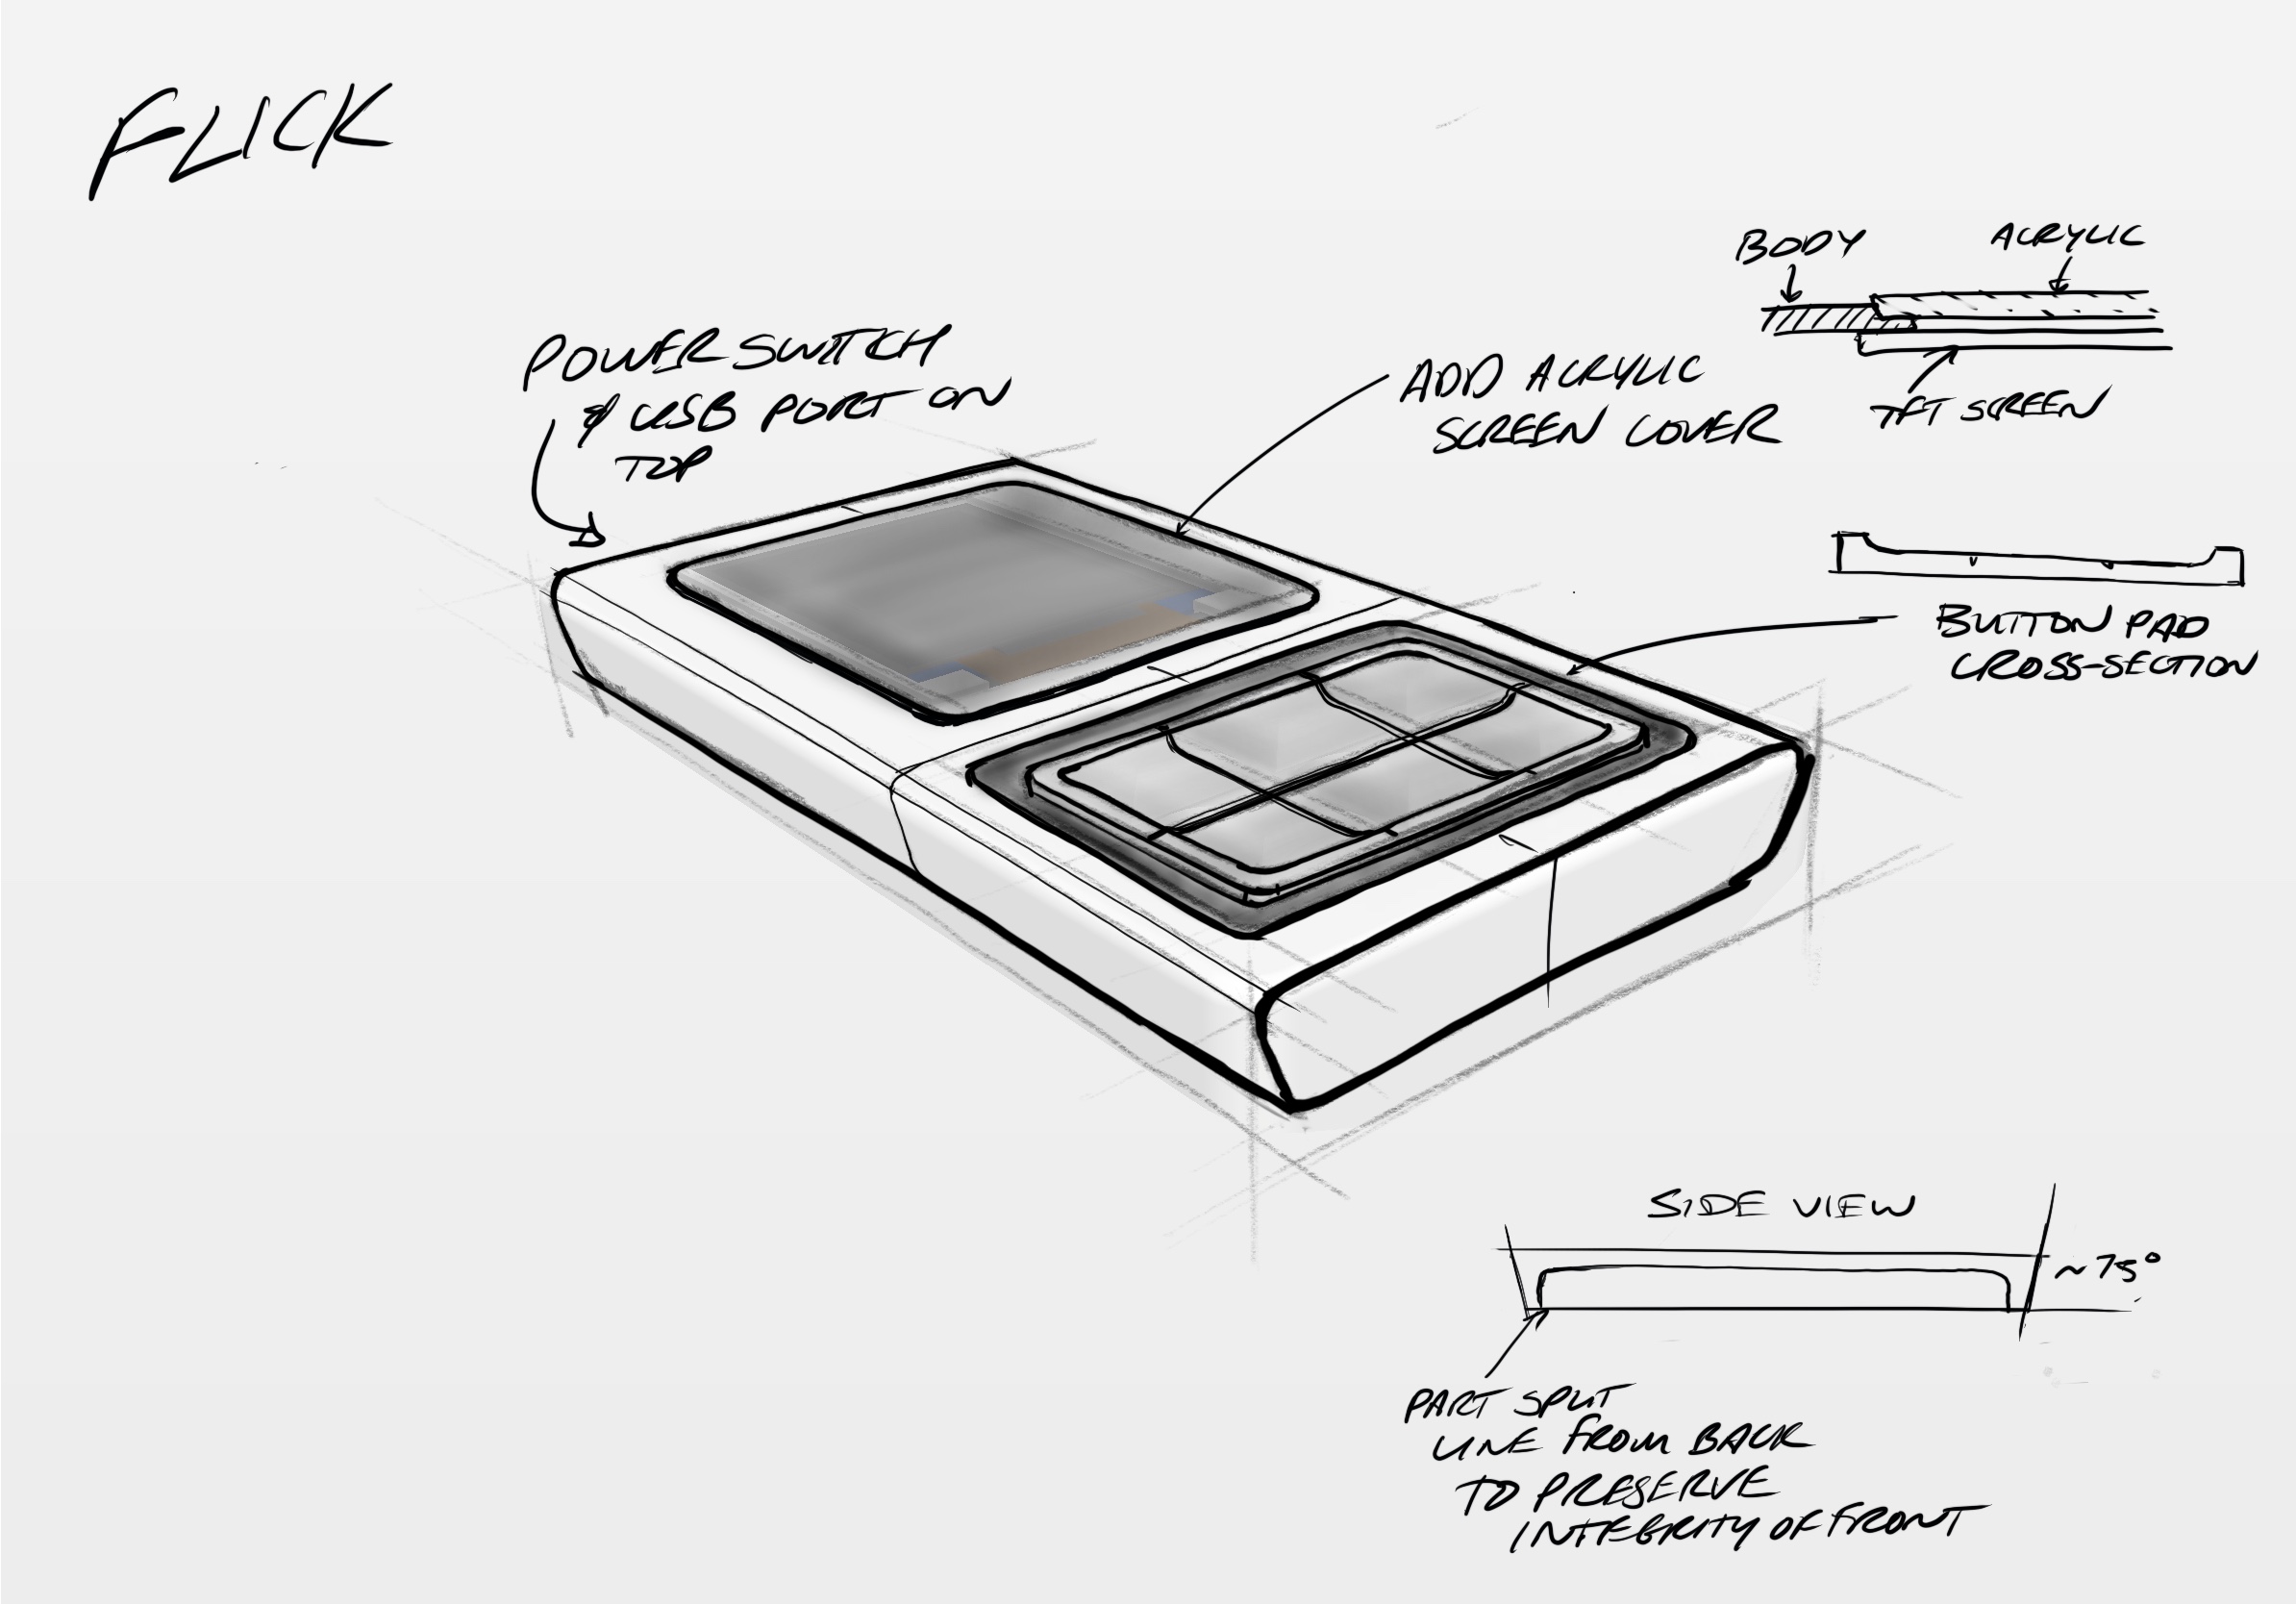 FLICK
POWER SWITCH
& USB PORT ON
TOP
ADD ACRYLIC
SCREEN COVER
BODY
ACRYLIC
TFT SCREEN
BUTTON PAD
CROSS-SECTION
SIDE VIEW
~75°
PART SPLIT
LINE FROM BACK
TO PRESERVE
INTEGRITY OF FRONT